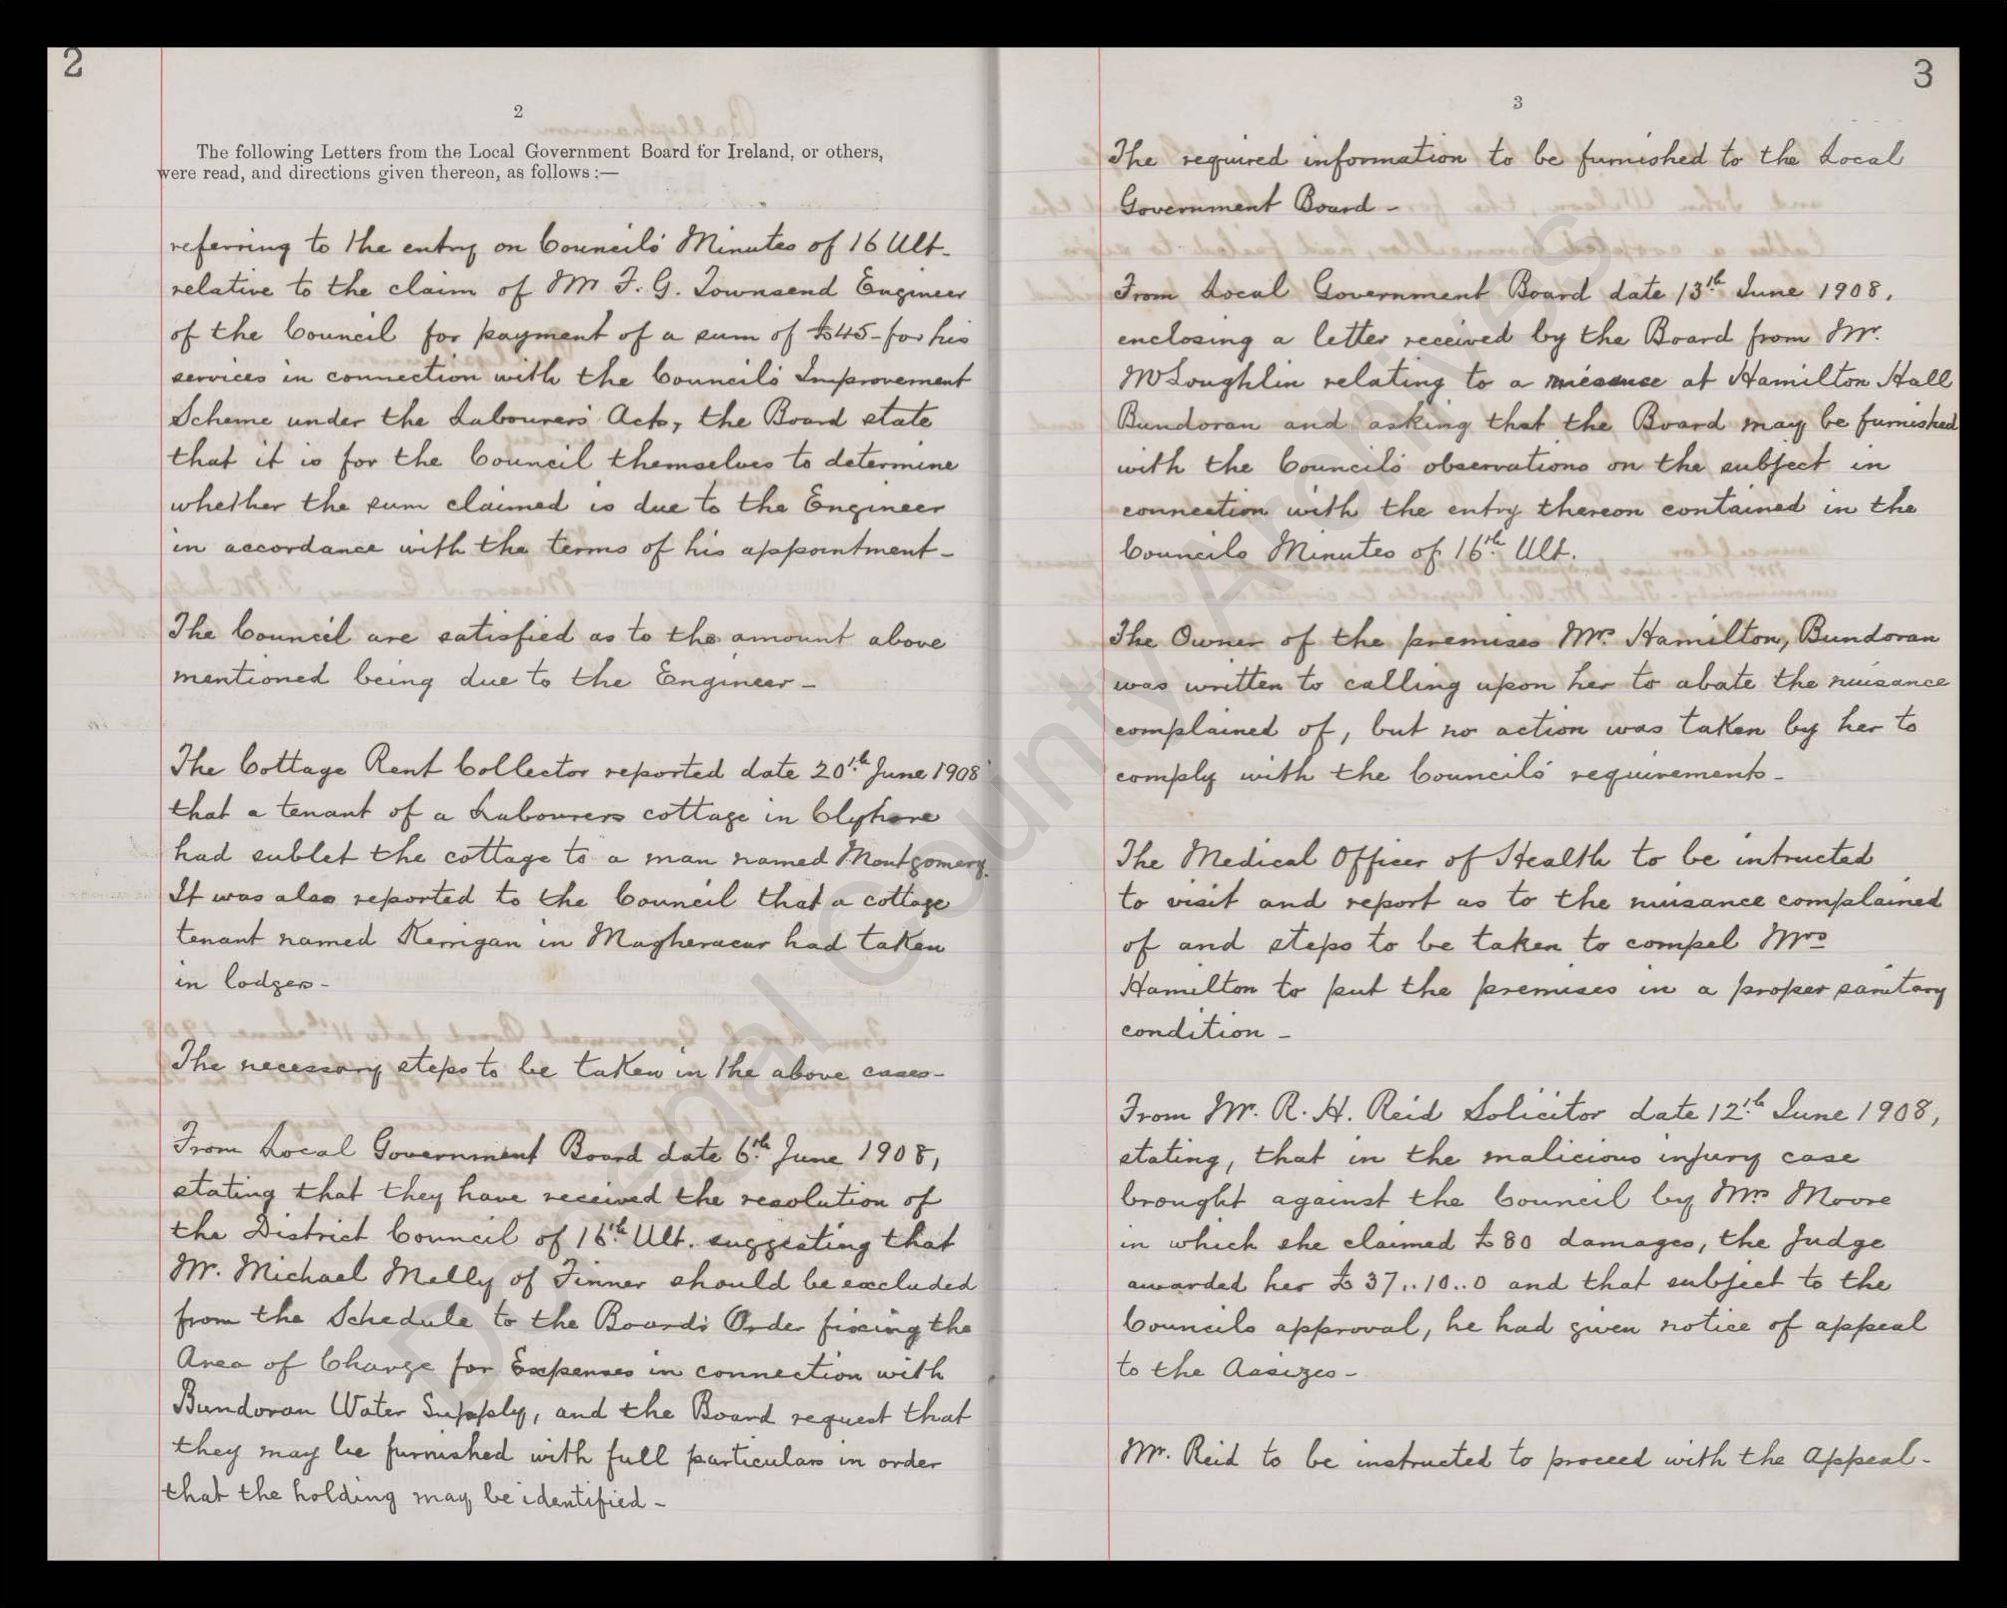 2
2
The following Letters from the Local Government Board for Ireland, or others,
were read, and directions given thereon, as follows :—
referring to the entry on Council's Minutes of 16 Ult.
relative to the claim of Mr F. G. Townsend Engineer
of the Council for payment of a sum of £45- for his
services in connection with the Council's Improvement
Scheme under the Labourers' Acts, the Board state
that it is for the Council themselves to determine
whether the sum claimed is due to the Engineer
in accordance with the terms of his appointment-
The Council are satisfied as to the amount above
mentioned being due to the Engineer-
The Cottage Rent Collector reported date 20th June 1908
that a tenant of a Labourers cottage in Clyhore
had sublet the cottage to a man named Montgomery.
It was also reported to the Council that a cottage
tenant named Kerrigan in Magheracar had taken
in lodgers-
The necessary steps to be taken in the above cases-
From Local Government Board date 6th June 1908,
stating that they have received the resolution of
the District Council of 16th Ult. suggesting that
Mr. Michael Melly of Finner should be excluded
from the Schedule to the Board's Order fixing the
Area of Charge for Expenses in connection with
Bundoran Water Supply, and the Board request that
they may be furnished with full particulars in order
that the holding may be identified-
3
3
The required information to be furnished to the Local
Government Board-
From Local Government Board date 13th June 1908,
enclosing a letter received by the Board from Mr.
McLoughlin relating to a at Hamilton Hall
Bundoran and asking that the Board may be furnished
with the Council's observations on the subject in
connection with the entry thereon contained in the
Councils Minutes of 16th Ult.
The Owner of the premises Mrs Hamilton, Bundoran
was written to calling upon her to abate the nuisance
complained of, but no action was taken by her to
comply with the Council's requirements-
The Medical Officer of Health to be intructed
to visit and report as to the nuisance complained
of and steps to be taken to compel Mrs
Hamilton to put the premises in a proper sanitary
condition-
From Mr. R. H. Reid Solicitor date 12th June 1908,
stating, that in the malicious injury case
brought against the Council by Mrs Moore
in which she claimed £80 damages, the Judge
awarded her £37..10..0 and that subject to the
Councils approval, he had given notice of appeal
to the Assizes-
Mr. Reid to be instructed to proceed with the Appeal-
Donegal County Archives